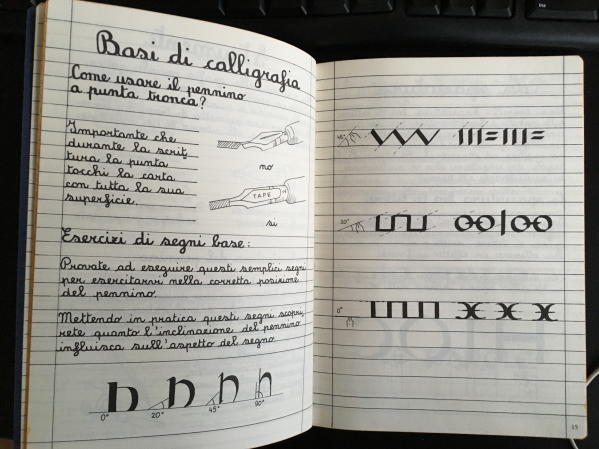 Basi di calligrafia
Come usare il pennino
a punta tronca?
Importante che
durante la scrit
tura la punta
tocchi la carta
con tutta la sua
superficie.
no
TAPE
si
Esercizi di segni base:
Provate ad eseguire questi semplici segni
per esercitarvi nella corretta posizione
del pennino.
Mettendo in pratica questi segni scopri,
rete quanto l'inclinazione del pennino
influisca sull'aspetto del segno.
0° 20° 45° 90°
45°
30°
0°
15